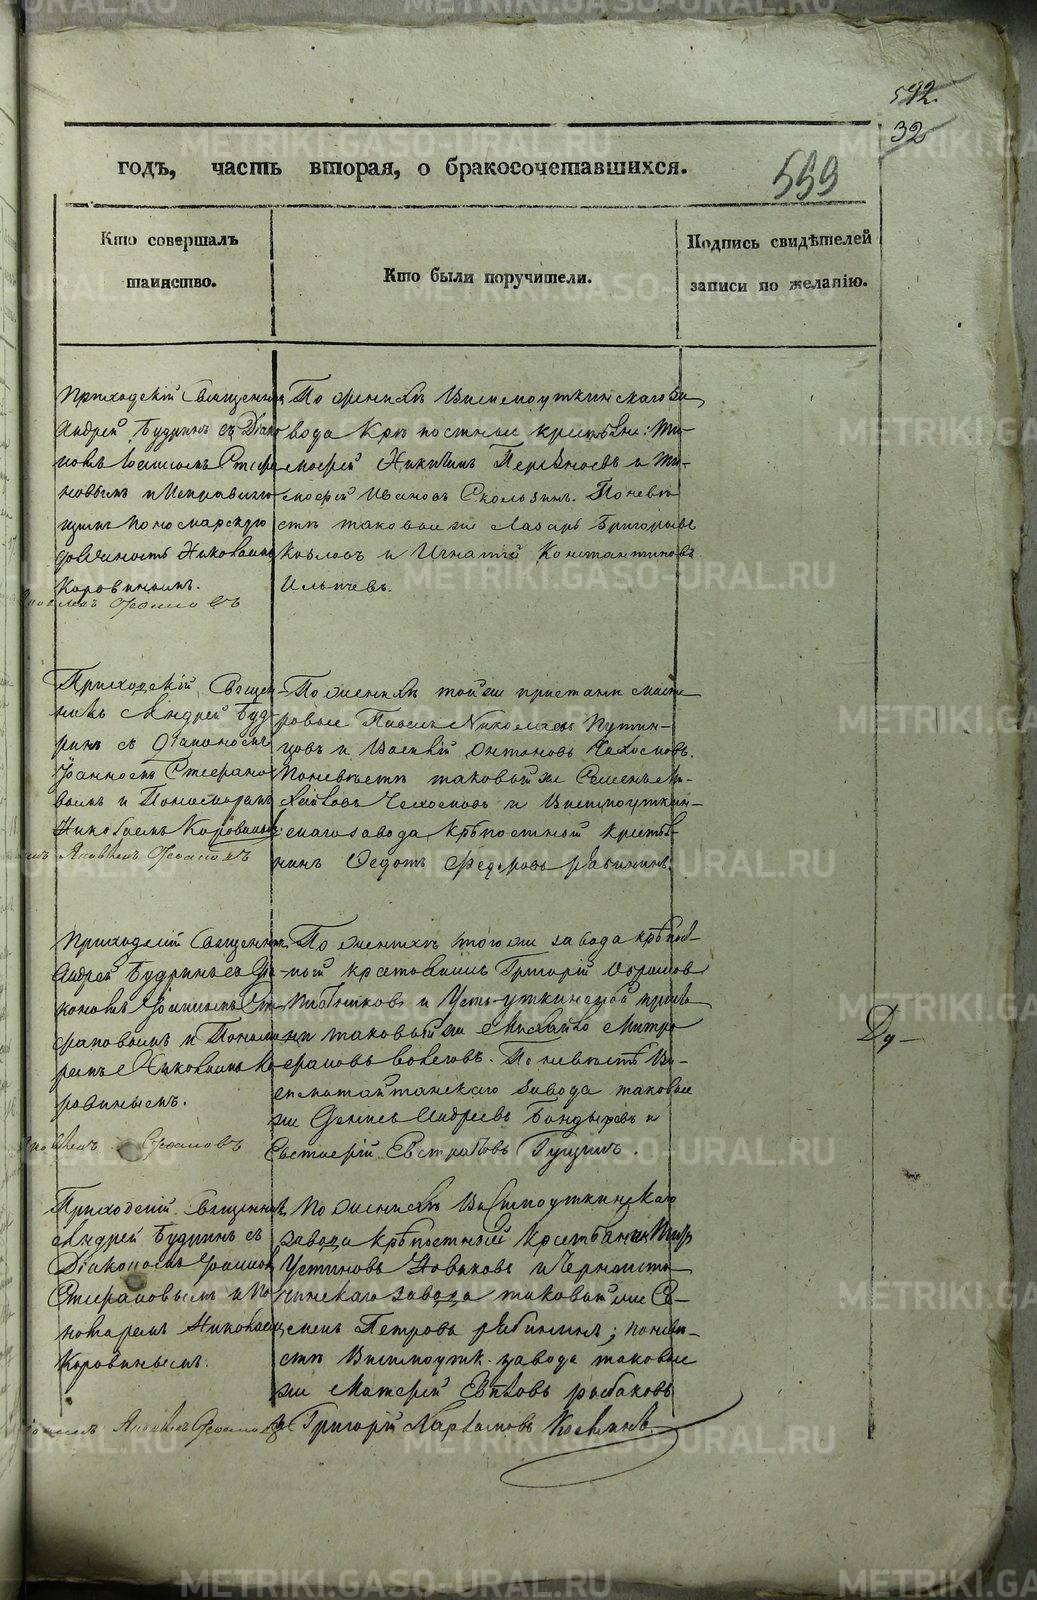 592.
32
годъ, часть вторая, о бракосочетавшихся.
599
Кто совершалъ
таинство.
Кто были поручители.
Подпись свидѣтелей
записи по желанію.
Приходскій Священникъ
Андрей Будринъ съ Діако
номъ Іоанномъ Стефа
новымъ и Исправляю
щимъ Пономарскую
должность Николаемъ
Коровинымъ.
По женихѣ Висимоуткинскаго За
вода Крѣпостные крестьяне: Ти
мофей Никитинъ и Ти
мофей Ивановъ Скользинъ. По невѣ
стѣ таковые же Лазарь Григорьевъ
Козловъ и Игнатій Константиновъ
Ильичевъ.
Приходскій Священ
никъ Андрей Буд
ринъ съ Діакономъ
Іоанномъ Стефано
вымъ и Пономаремъ
Николаемъ Коровинымъ
По женихѣ той же пристани масте
ровые Павелъ Николаевъ Путин
цовъ и Василій Антоновъ
По невѣстѣ таковый же Семенъ Ми
хайловъ и Висимоуткин
скаго завода крѣпостный крестья
нинъ Федотъ Федоровъ Рябининъ.
Приходскій Священникъ
Андрей Будринъ съ Діа
кономъ Іоанномъ Сте
фановымъ и Понома
ремъ Николаемъ Ко
ровинымъ.
По женихѣ того же завода крѣпост
ной крестьянинъ Григорій Абрамовъ
Плотниковъ и Усть-уткинской приста
ни таковый же Михайло Митро
фановъ Волеговъ. По невѣстѣ Ви
симошайтанскаго Завода таковые
же Денисъ Андреевъ Бондыревъ и
Евстафій Евстратовъ Гущинъ.
Ду
Приходскій Священникъ
Андрей Будринъ съ
Діакономъ Іоанномъ
Стефановымъ и По
номаремъ Николаемъ
Коровинымъ.
По женихѣ Висимоуткинскаго
завода крѣпостный Крестьянинъ
Устиновъ Новиковъ и Черноисто
чинскаго завода таковый же Се
менъ Петровъ Рябининъ; по невѣ
стѣ Висимоутк. завода таковые
же Матфей Рыбаковъ
Григорій Харламовъ